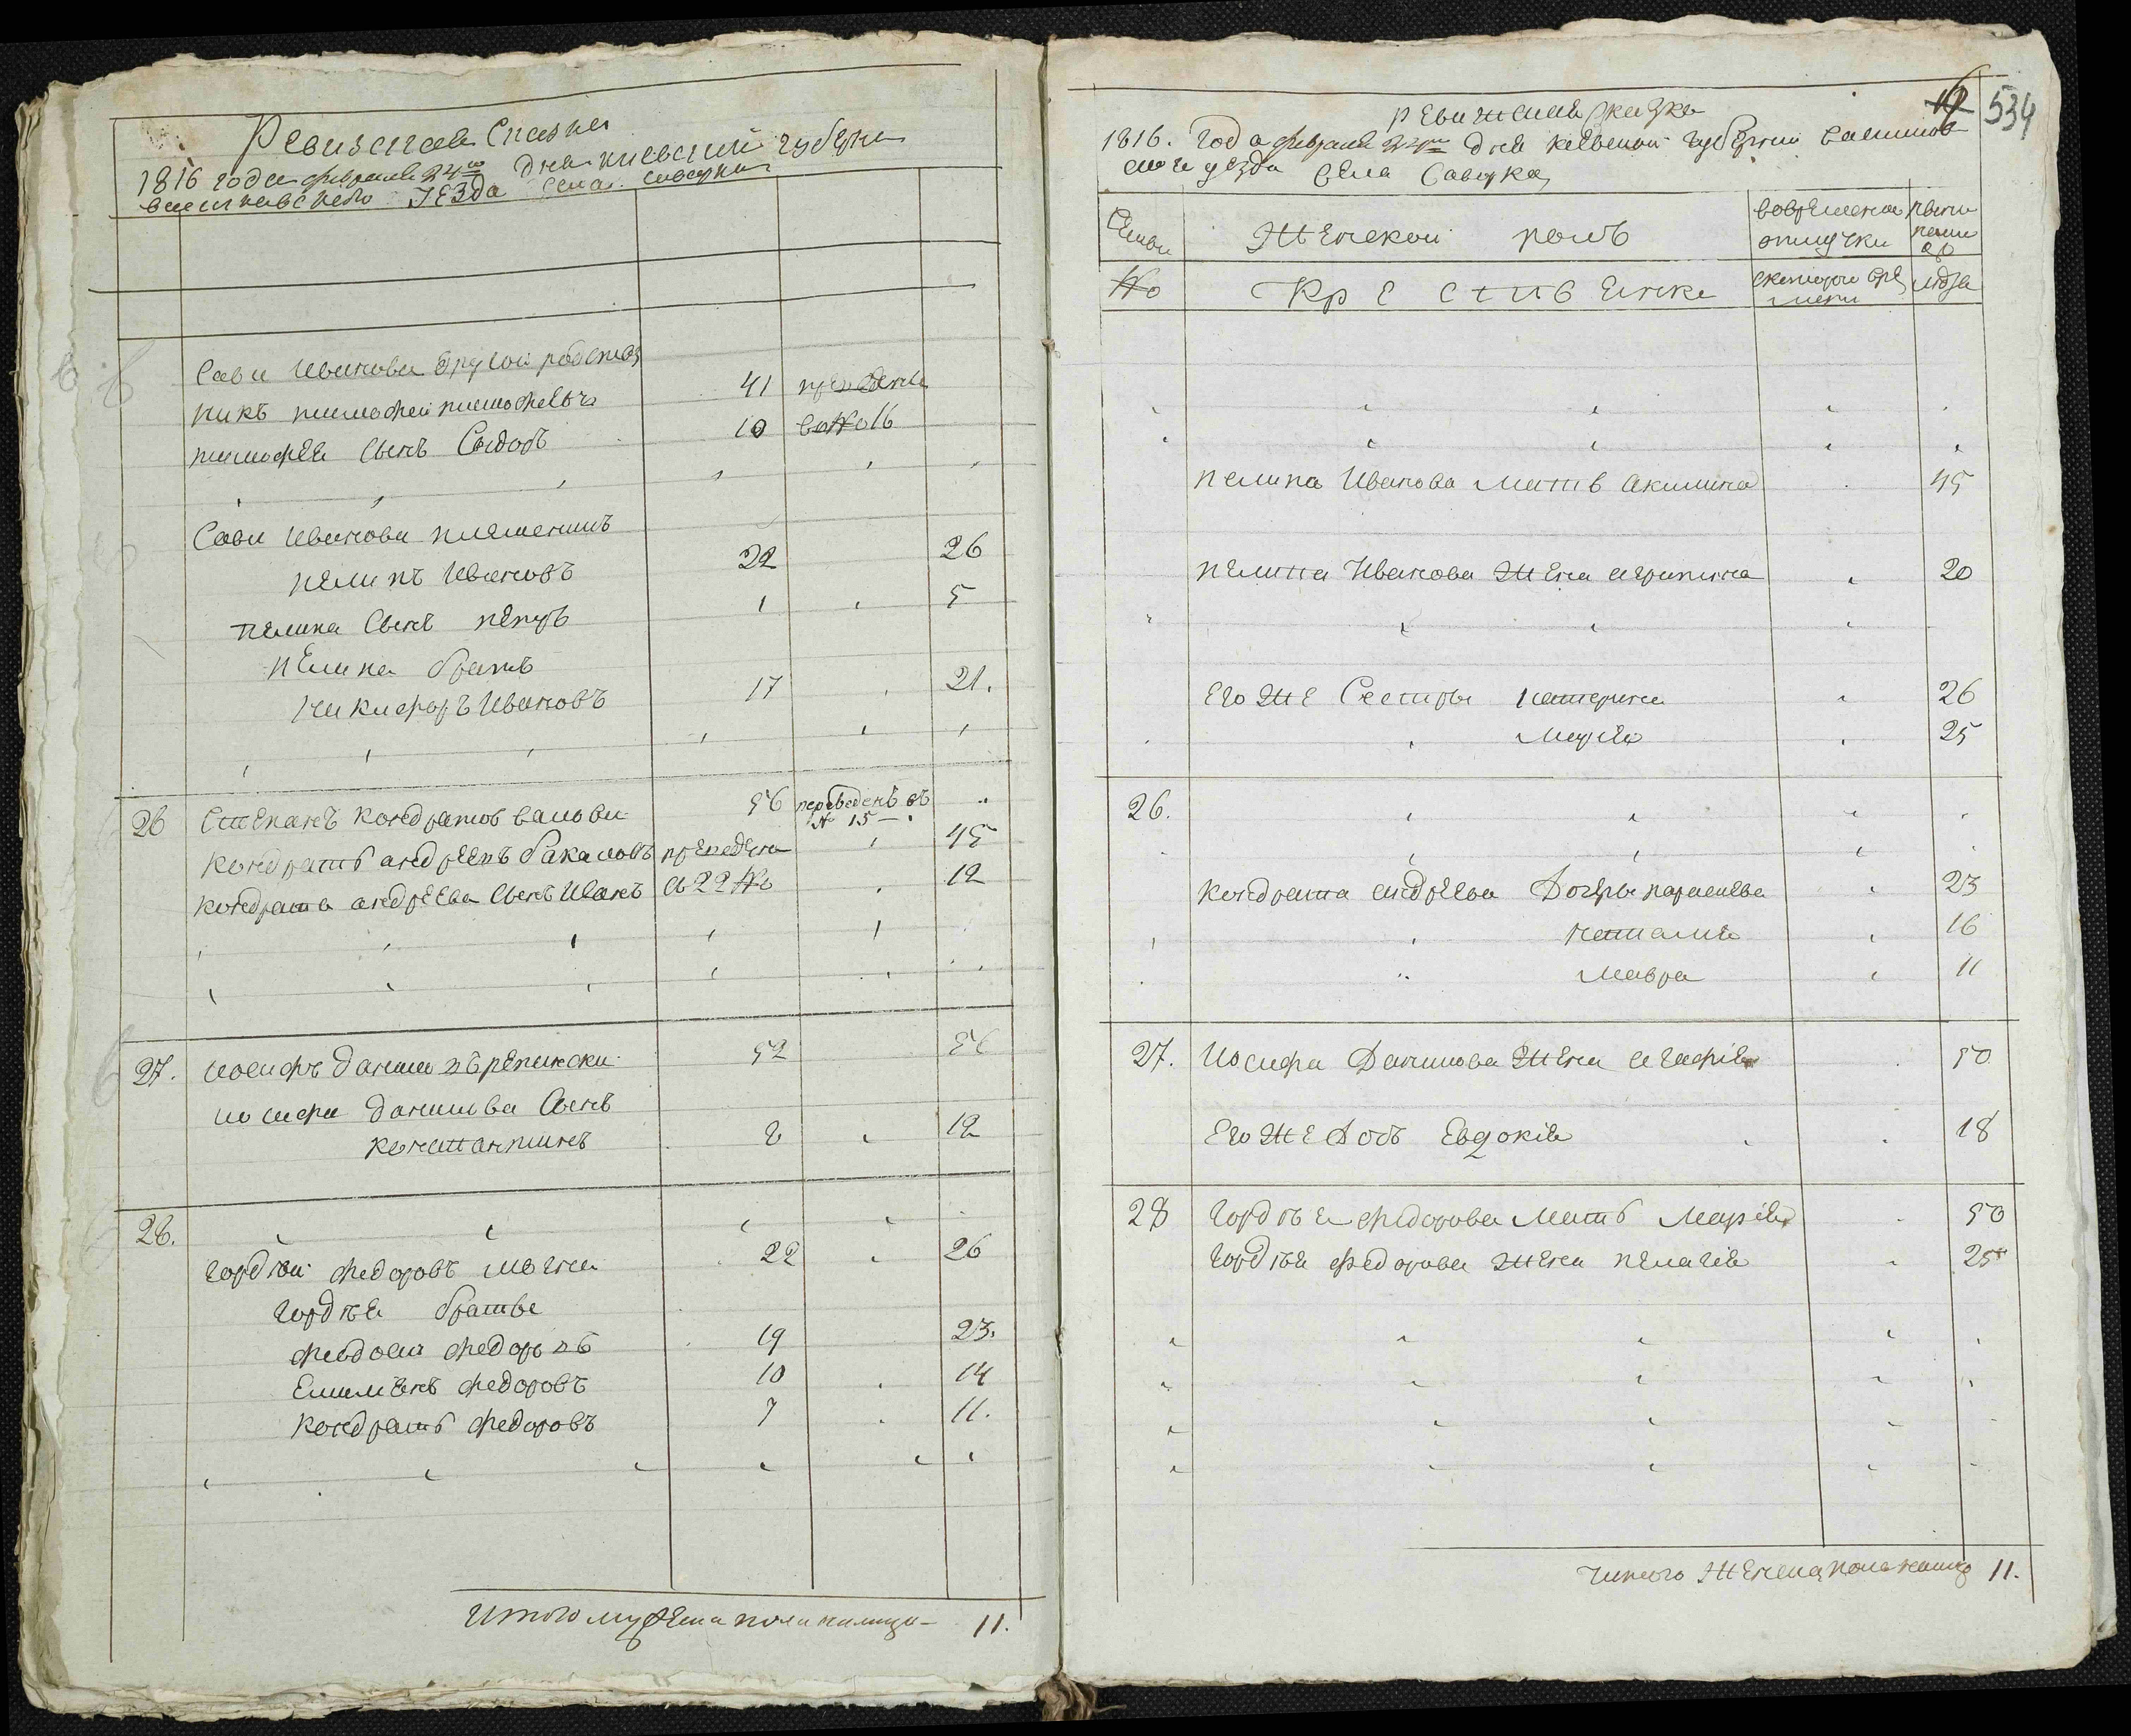 Ревизская Сказка
1816 года февраля 24го Дня киевской губерни
василковского УЕЗда Села Саварки
Сави Иванова другой
никъ тимофей тимофеевъ 41
тимофея Сынъ Сыдоръ 10 воNо16
Сави Иванова племенникъ
пилипъ Ивановъ 22 26
пилипа Сынъ пётръ 1 5
пилипа братъ
никифоръ Ивановъ 17 21.
26 Степанъ кондратов 56 переведенъ въ
№ 15
кондратъ андреевъ 45
кондрата андреева Сынъ Иванъ с 22 No 12
27. иосифъ данил 52 56
иосифа данилова Сынъ
константинъ 8 12
28.
гордъй федоровъ 22 26
гордъя братья
феодосий федоровъ 19 23.
Емилианъ федоровъ 10 14
кондратъ федоровъ 7 11.
Итого мужеска пола налицо 11.
534
ревижская скаска
1816. года февраля 24го дня киевской губернии василков
ского уезда села Саварки
Семьи Женской полъ вовременной
отлучки
No Крестьянке скоторого вре
мени лѣта
пилипа Иванова мать акилина 45
пилипа Иванова жена агрипина 20
Его же Сестры катерина 26
Мария 25
26.
кондрата андреева Дочеры парасковья 23
наталия 16
Мавра 11
27. Иосифа Данилова жена агафия 50
Его же Дочъ Евдокия 18
28 гордъя федорова мать Мария 50
гордъя федорова жена пелагея 25
Итого женска пола налицо 11.